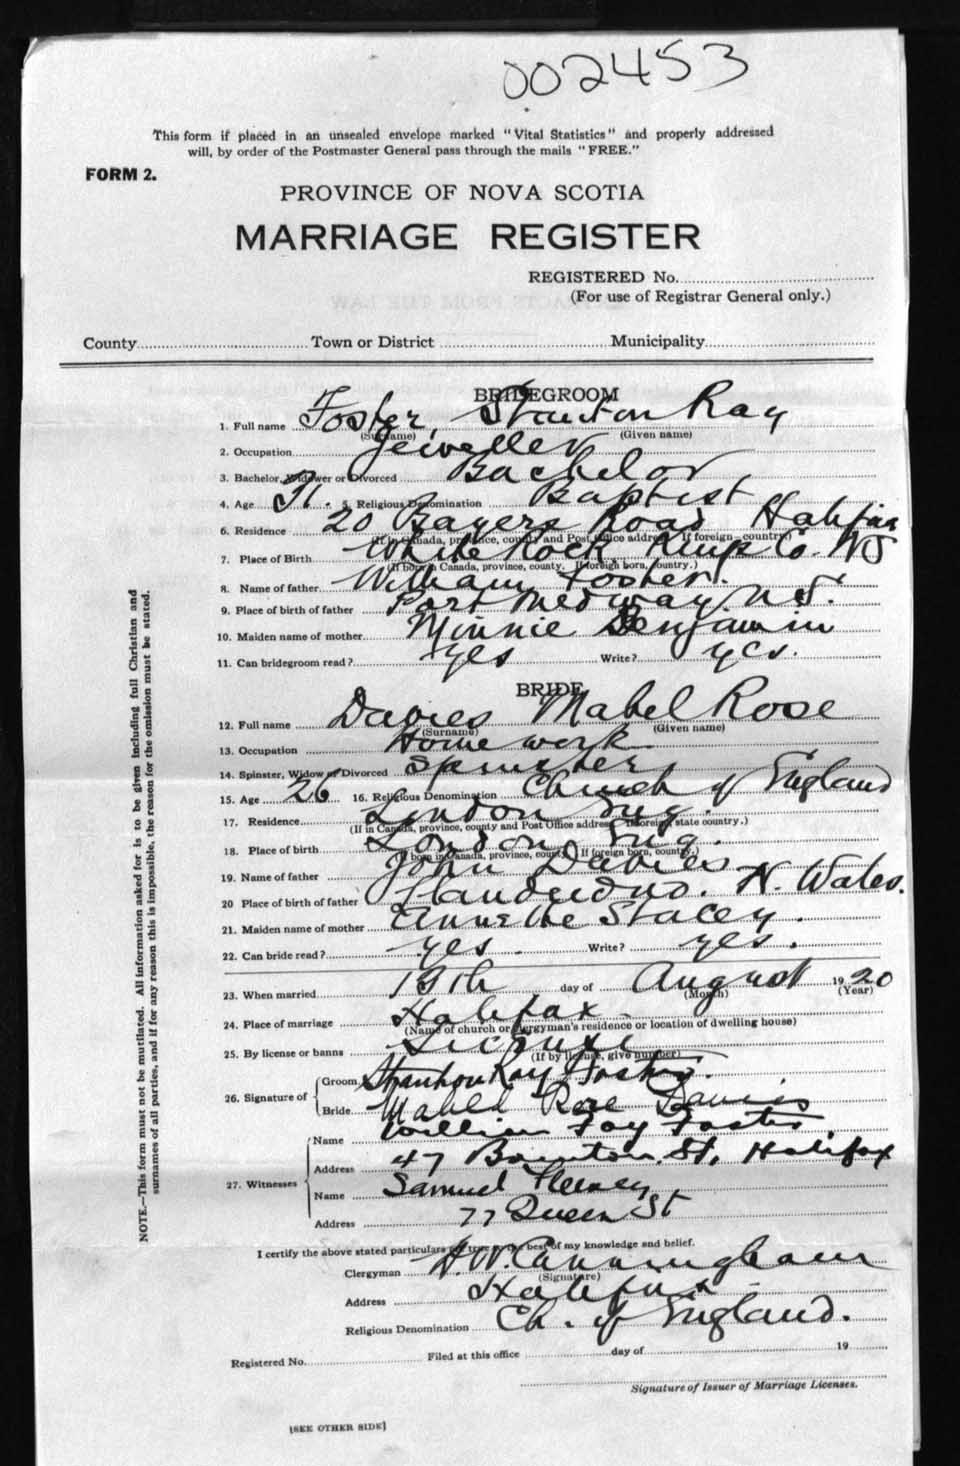 002453
This form if placed in an unsealed envelope marked "Vital Statistics" and properly addressed
will, by order of the Postmaster General pass through the mails "FREE."
FORM 2.
PROVINCE OF NOVA SCOTIA
MARRIAGE REGISTER
REGISTERED No.
(For use of Registrar General only.)
County Town or District Municipality
BRIDEGROOM
1. Full name Foster, Stanton Ray
(Surname) (Given name)
2. Occupation Jeweller
3. Bachelor, Widower or Divorced Bachelor
4. Age 31. 5. Religious Denomination Baptist
6. Residence 20 Bayers Road Halifax
(If in Canada, province, county and Post Office address. If foreign, country.)
7. Place of Birth White Rock, Kings Co. NS
(If born in Canada, province, county. If foreign born, country.)
8. Name of father William Foster.
9. Place of birth of father Port Medway N.S.
10. Maiden name of mother Minnie Benjamin
11. Can bridegroom read? yes Write? yes.
BRIDE
12. Full name Davies Mabel Rose
(Surname) (Given name)
13. Occupation Home work
14. Spinster, Widow or Divorced Spinster
15. Age 26 16. Religious Denomination Church of England
17. Residence London Eng.
(If in Canada, province, county and Post Office address. If foreign state country.)
18. Place of birth London, Eng.
(If born in Canada, province, county. If foreign born, country.)
19. Name of father John Davies
20 Place of birth of father Llandudno. N. Wales.
21. Maiden name of mother Annette Stacey.
22. Can bride read? yes. Write? yes.
23. When married day of August 1920
(Month) (Year)
24. Place of marriage Halifax
(Name of church or clergyman's residence or location of dwelling house)
25. By license or banns License
(If by license, give number)
26. Signature of Groom Stanton Ray Foster.
Bride Mabel Rose Davies
27. Witnesses Name William Foster
Address 47 St. Halifax
Name Samuel
Address 77 Queen St
I certify the above stated particulars are true to the best of my knowledge and belief.
Clergyman H.W. Cunningham
(Signature)
Address Halifax
Religious Denomination Ch. of England.
Registered No. Filed at this office day of 19
Signature of Issuer of Marriage Licenses.
[SEE OTHER SIDE]
NOTE.—This form must not be mutilated. All information asked for is to be given including full Christian and
surnames of all parties, and if for any reason this is impossible, the reason for the omission must be stated.